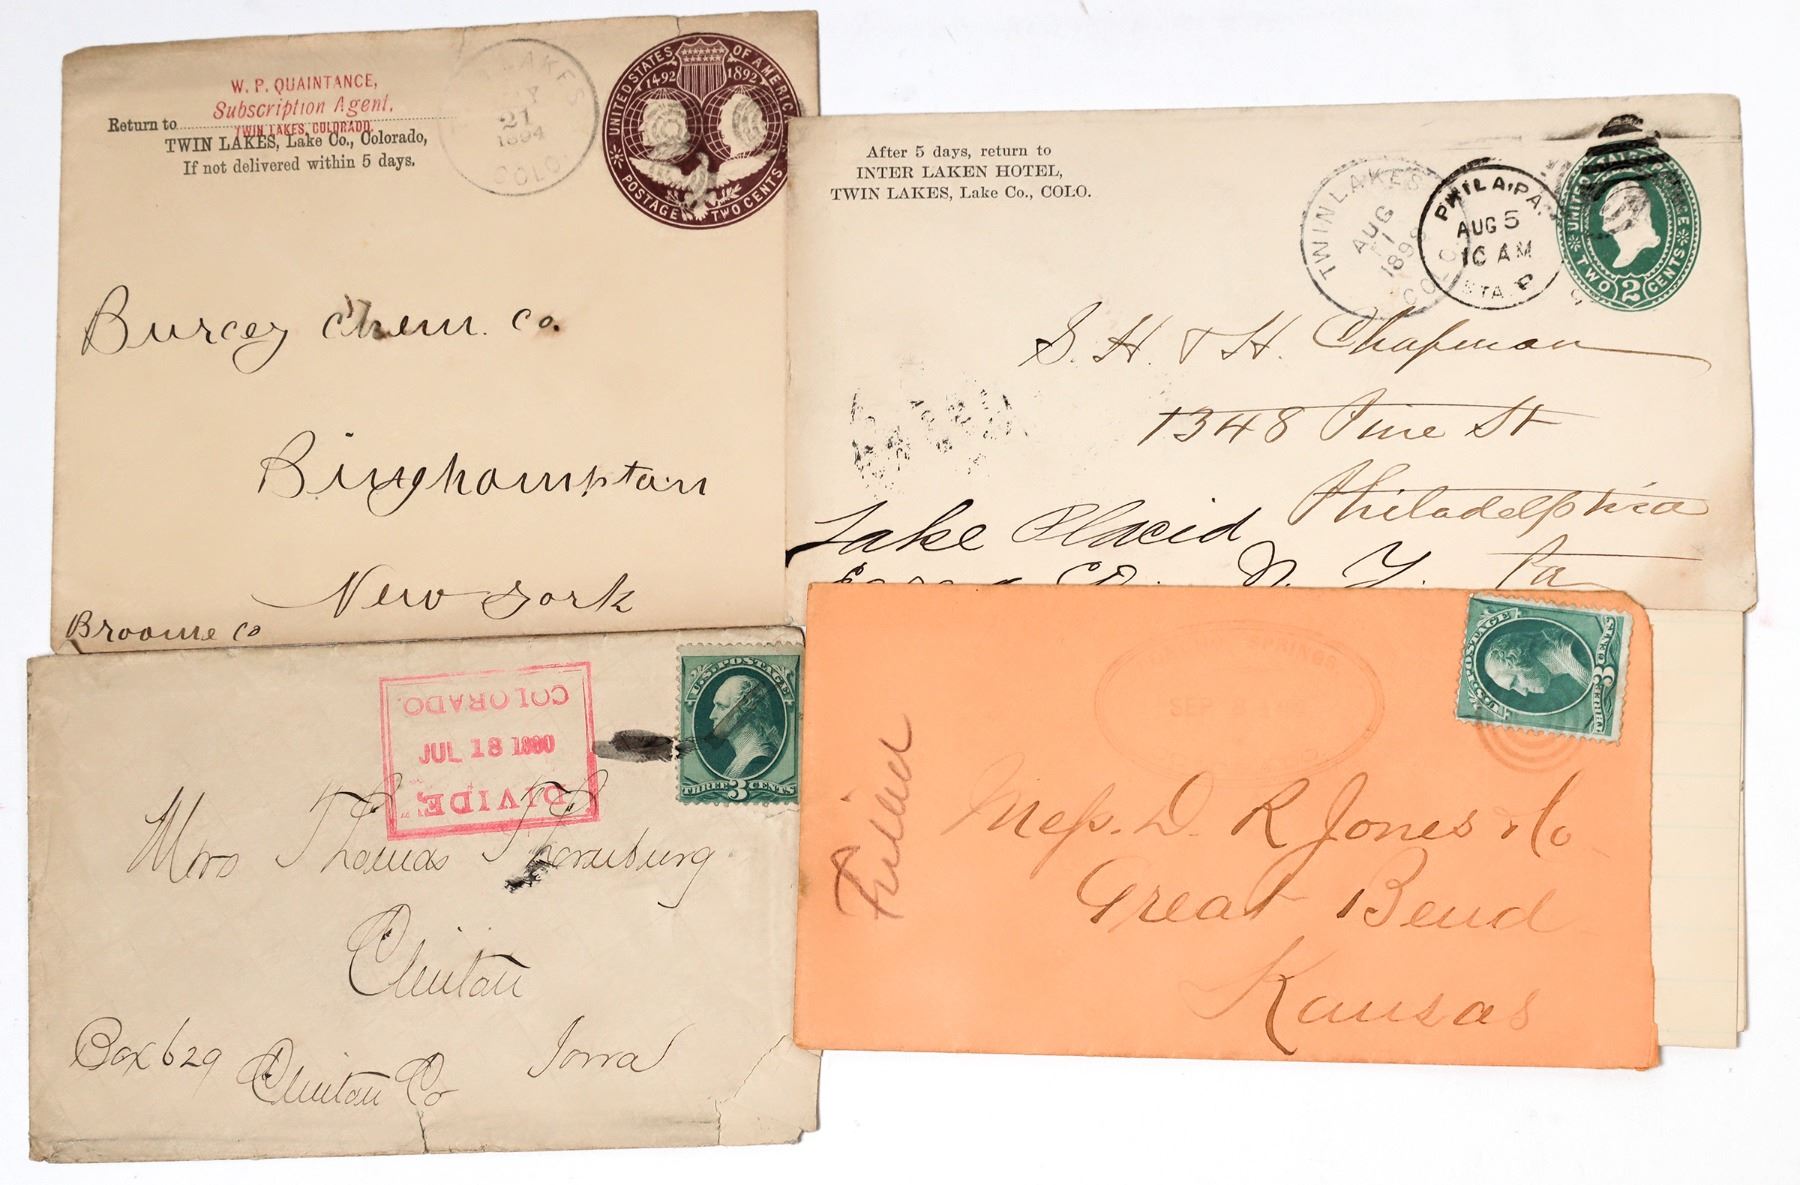 W. P. QUAINTANCE,
Subscription Agent.
TWIN LAKES, COLORADO.
Return to
TWIN LAKES, Lake Co., Colorado,
If not delivered within 5 days.
LAKES
21
1894
COLO.
UNITED STATES OF AMERICA
1492 1892
POSTAGE TWO CENTS
Burcey Chem. Co.
Binghampton
New York
Broome Co
After 5 days, return to
INTER LAKEN HOTEL,
TWIN LAKES, Lake Co., COLO.
TWIN LAKES
AUG
1
COLO
PHILA, PA.
AUG 5
10 AM
STA. P
UNITED STATES POSTAGE
TWO 2 CENTS
S. H. & H. Chapman
1348 Pine St
Philadelphia
Pa
Lake Placid
N. Y.
DIVIDE,
JUL 18 1880
COLORADO.
U.S. POSTAGE
THREE 3 CENTS
Mrs Thomas Thornburg
Clinton
Box 629 Clinton Co Iowa
SPRINGS
SEP
U.S. POSTAGE
THREE 3 CENTS
Filied
Mess. D. R Jones & Co
Great Bend
Kansas